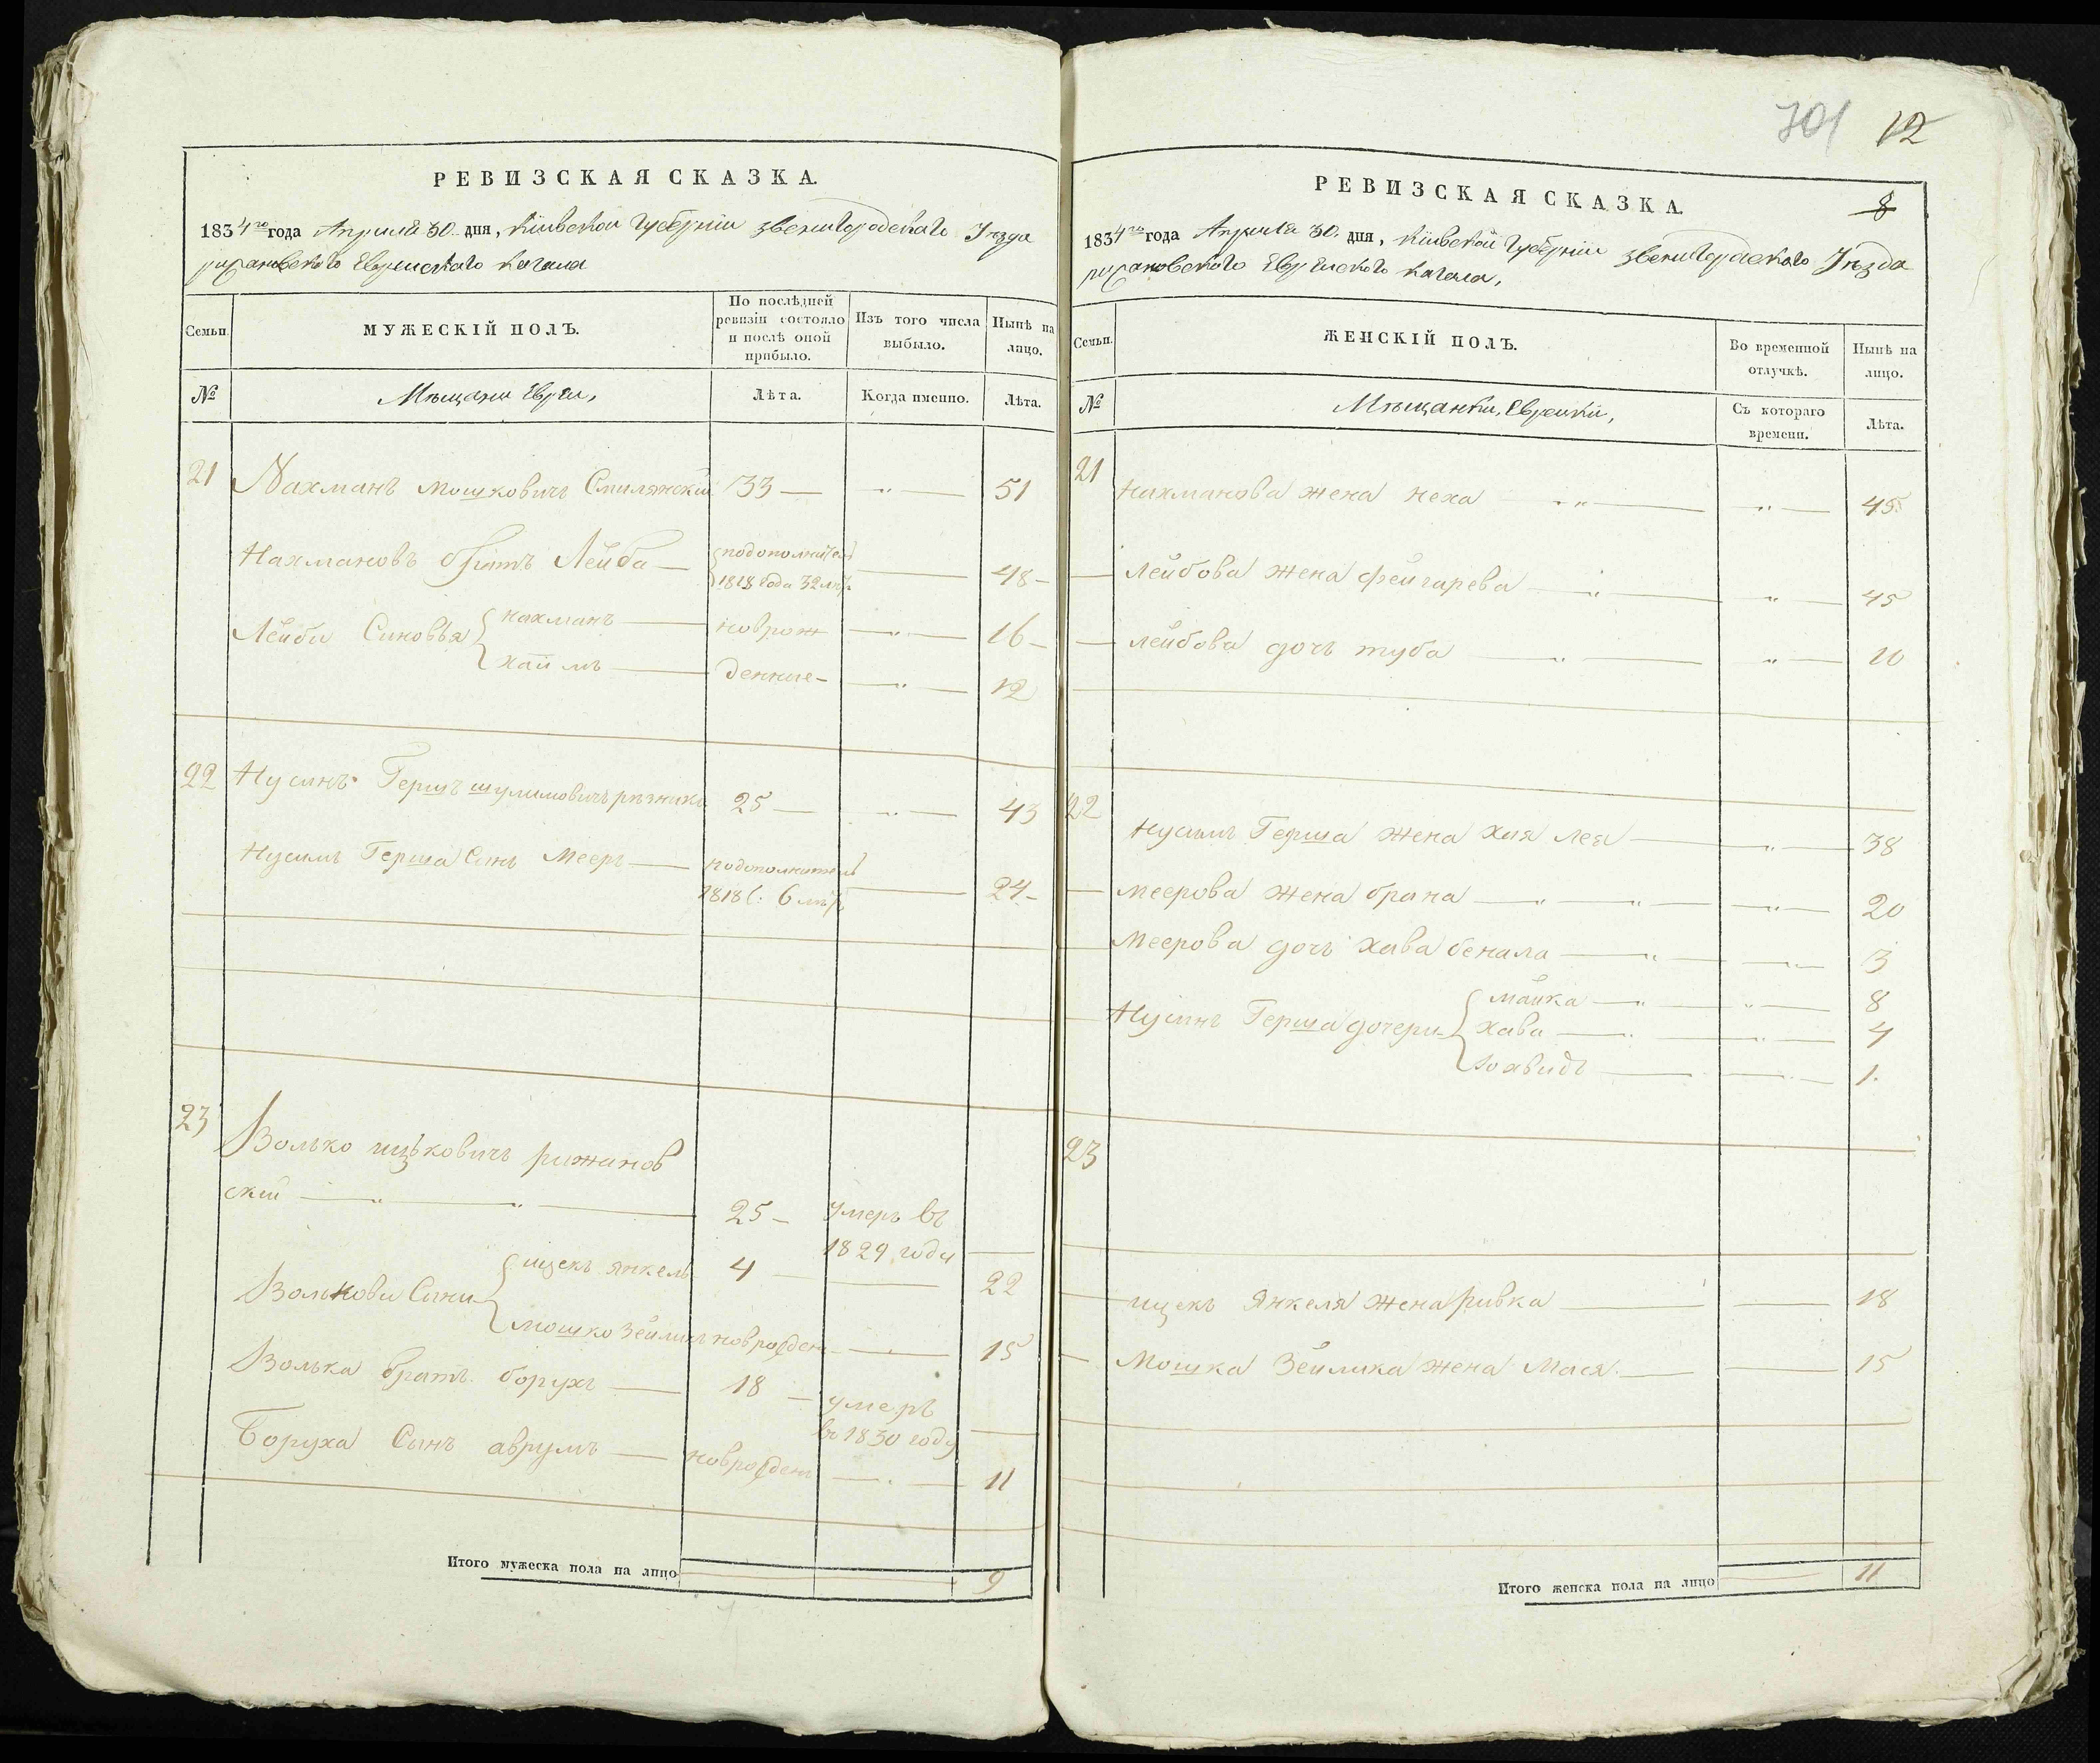 701 12
РЕВИЗСКАЯ СКАЗКА.
1834го года Апреля 30. дня, Кіивской Губерніи Звенигородскаго Уезда
рижановского Еврейскаго Кагала
Семьи.
МУЖЕСКІЙ ПОЛЪ.
По послѣдней ревизіи состояло и послѣ оной прибыло.
Изъ того числа выбыло.
Нынѣ на лицо.
№
Мѣщани Евреи,
Лѣта.
Когда именно.
Лѣта.
21 Нахманъ Мошковичъ Смилянскій 33 — „ — 51
Нахмановъ братъ Лейба — подополнител 1818 года 32 лѣт — 48 —
Лейби Синовья { нахманъ — новрож — „ — 16 —
хаймъ — денние — — „ — 12
22 Нусинъ Гершъ шулимовичъ рѣзникъ 25 — „ — 43
Нусимъ Герша Синъ Мееръ — подополнител 1818 г: 6 лѣт — 24 —
23 Волько ицковичъ рижанов
ский — „ — „ — 25 — Умеръ въ
1829 годи —
Волькови Сини { ицекъ янкель 4 — — 22
мошко Зейликъ новрожден — — 15
Волька братъ борухъ — 18 — умеръ
въ 1830 году —
Боруха Синъ аврумъ — новрожден — . — 11
Итого мужеска пола на лицо 9
РЕВИЗСКАЯ СКАЗКА.
8
1834го года Апреля 30. дня, Кіивской Губерніи Звенигородскаго Уѣзда
рижановского Еврейского Кагала,
Семьи.
ЖЕНСКІЙ ПОЛЪ.
Во временной отлучкѣ.
Нынѣ на лицо.
№
Мѣщанки, Еврейки,
Съ котораго времени.
Лѣта.
21 Нахманова жена неха — „ — „ — 45
— Лейбова жена фейгарева — „ — „ — 45
— Лейбова дочъ туба — „ — „ — 10
22 Нусимъ Герша жена хая лея — „ — 38
— меерова жена брана — „ — „ — „ — 20
меерова дочъ хава бенала — „ — „ — 3
Нусинъ Герша дочери { майка — „ — „ — 8
хава — „ — „ — 4
— — 1.
23
ицекъ Янкеля жена Ривка — — 18
— Мошка Зейлика жена Мася. — — 15
Итого женска пола на лицо 11